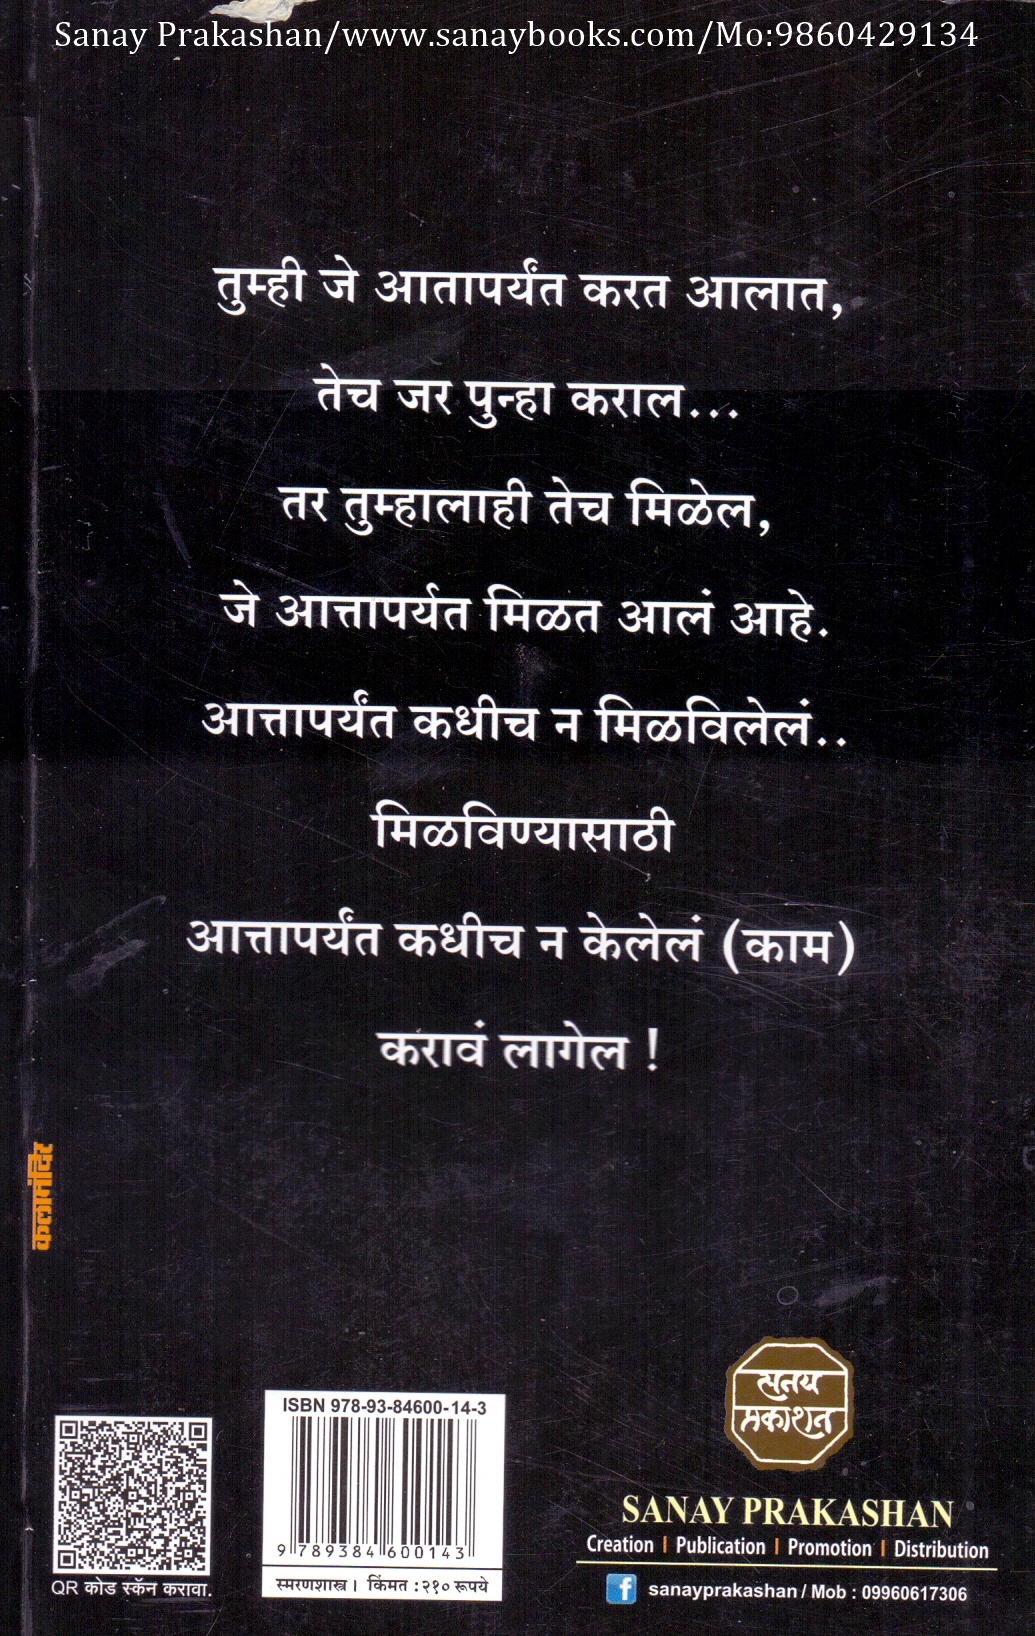 Sanay Prakashan/www.sanaybooks.com/Mo:9860429134
तुम्ही जे आतापर्यंत करत आलात,
तेच जर पुन्हा कराल...
तर तुम्हालाही तेच मिळेल,
जे आत्तापर्यत मिळत आलं आहे.
आत्तापर्यंत कधीच न मिळविलेलं..
मिळविण्यासाठी
आत्तापर्यंत कधीच न केलेलं (काम)
करावं लागेल !
कलामंदिर
QR कोड स्कॅन करावा.
ISBN 978-93-84600-14-3
9 789384 600143
स्मरणशास्त्र । किंमत : २१० रूपये
सनय
प्रकाशन
SANAY PRAKASHAN
Creation | Publication | Promotion | Distribution
f sanayprakashan / Mob : 09960617306